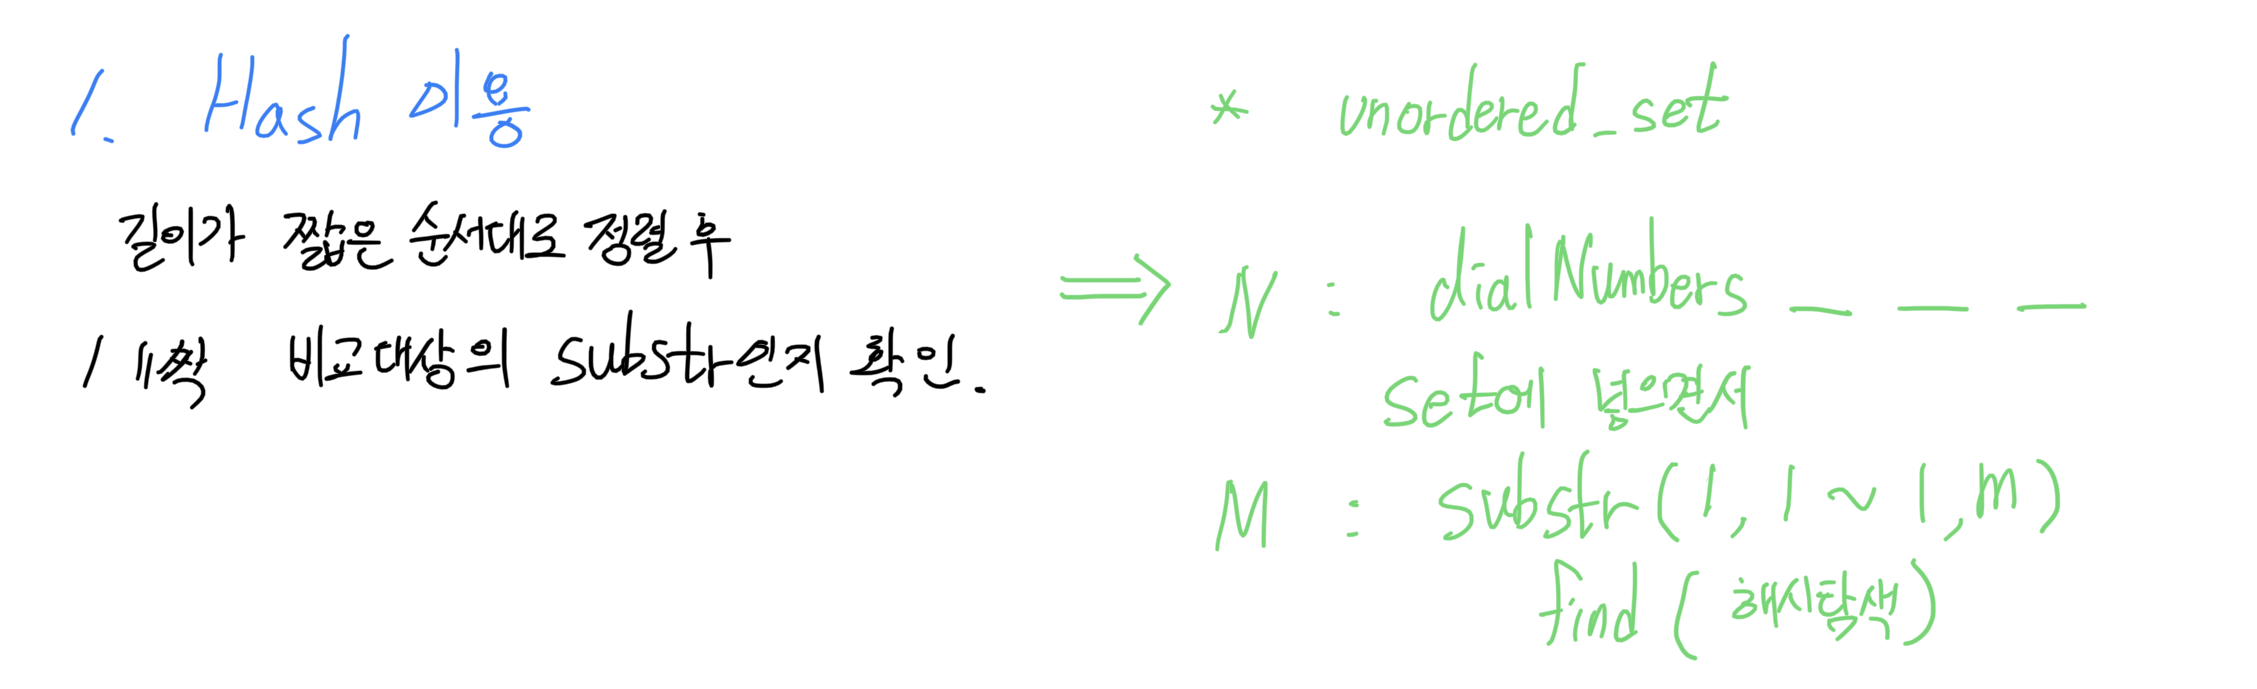 1. Hash 이용
길이가 짧은 순서대로 정렬 후
1개씩 비교대상의 substr인지 확인.
* unordered_set
⇒ N : dialNumbers _ _ _
set에 넣으면서
M : substr(1, 1 ~ 1, m)
find (해시탐색)